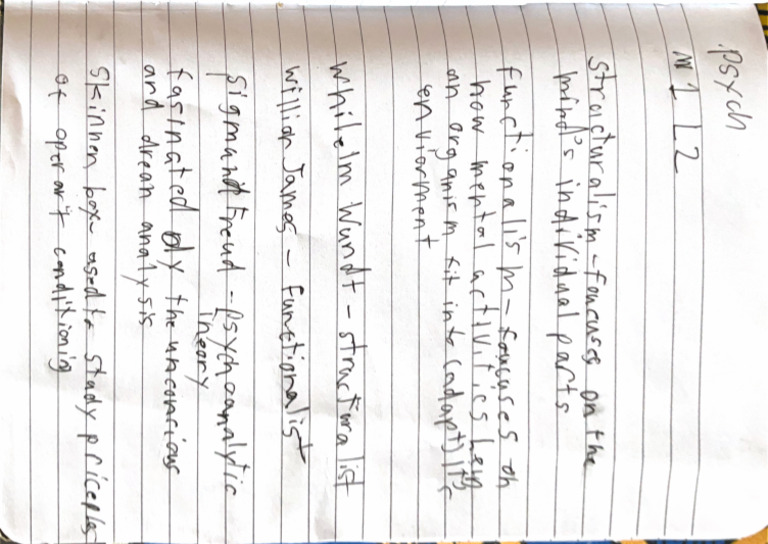 Psych
M 1 L 2
structuralism - foucuses on the
mind's individual parts
functionalism - foucuses on
how mental activities help
an organism fit into (adapt) its
enviorment
Whilelm Wundt - structuralist
Willian James - functionalist
Sigmund freud - psychoanalytic
theory
fasinated by the unconcious
and dream analysis
Skinner box - used to study priceples
of operant conditioning